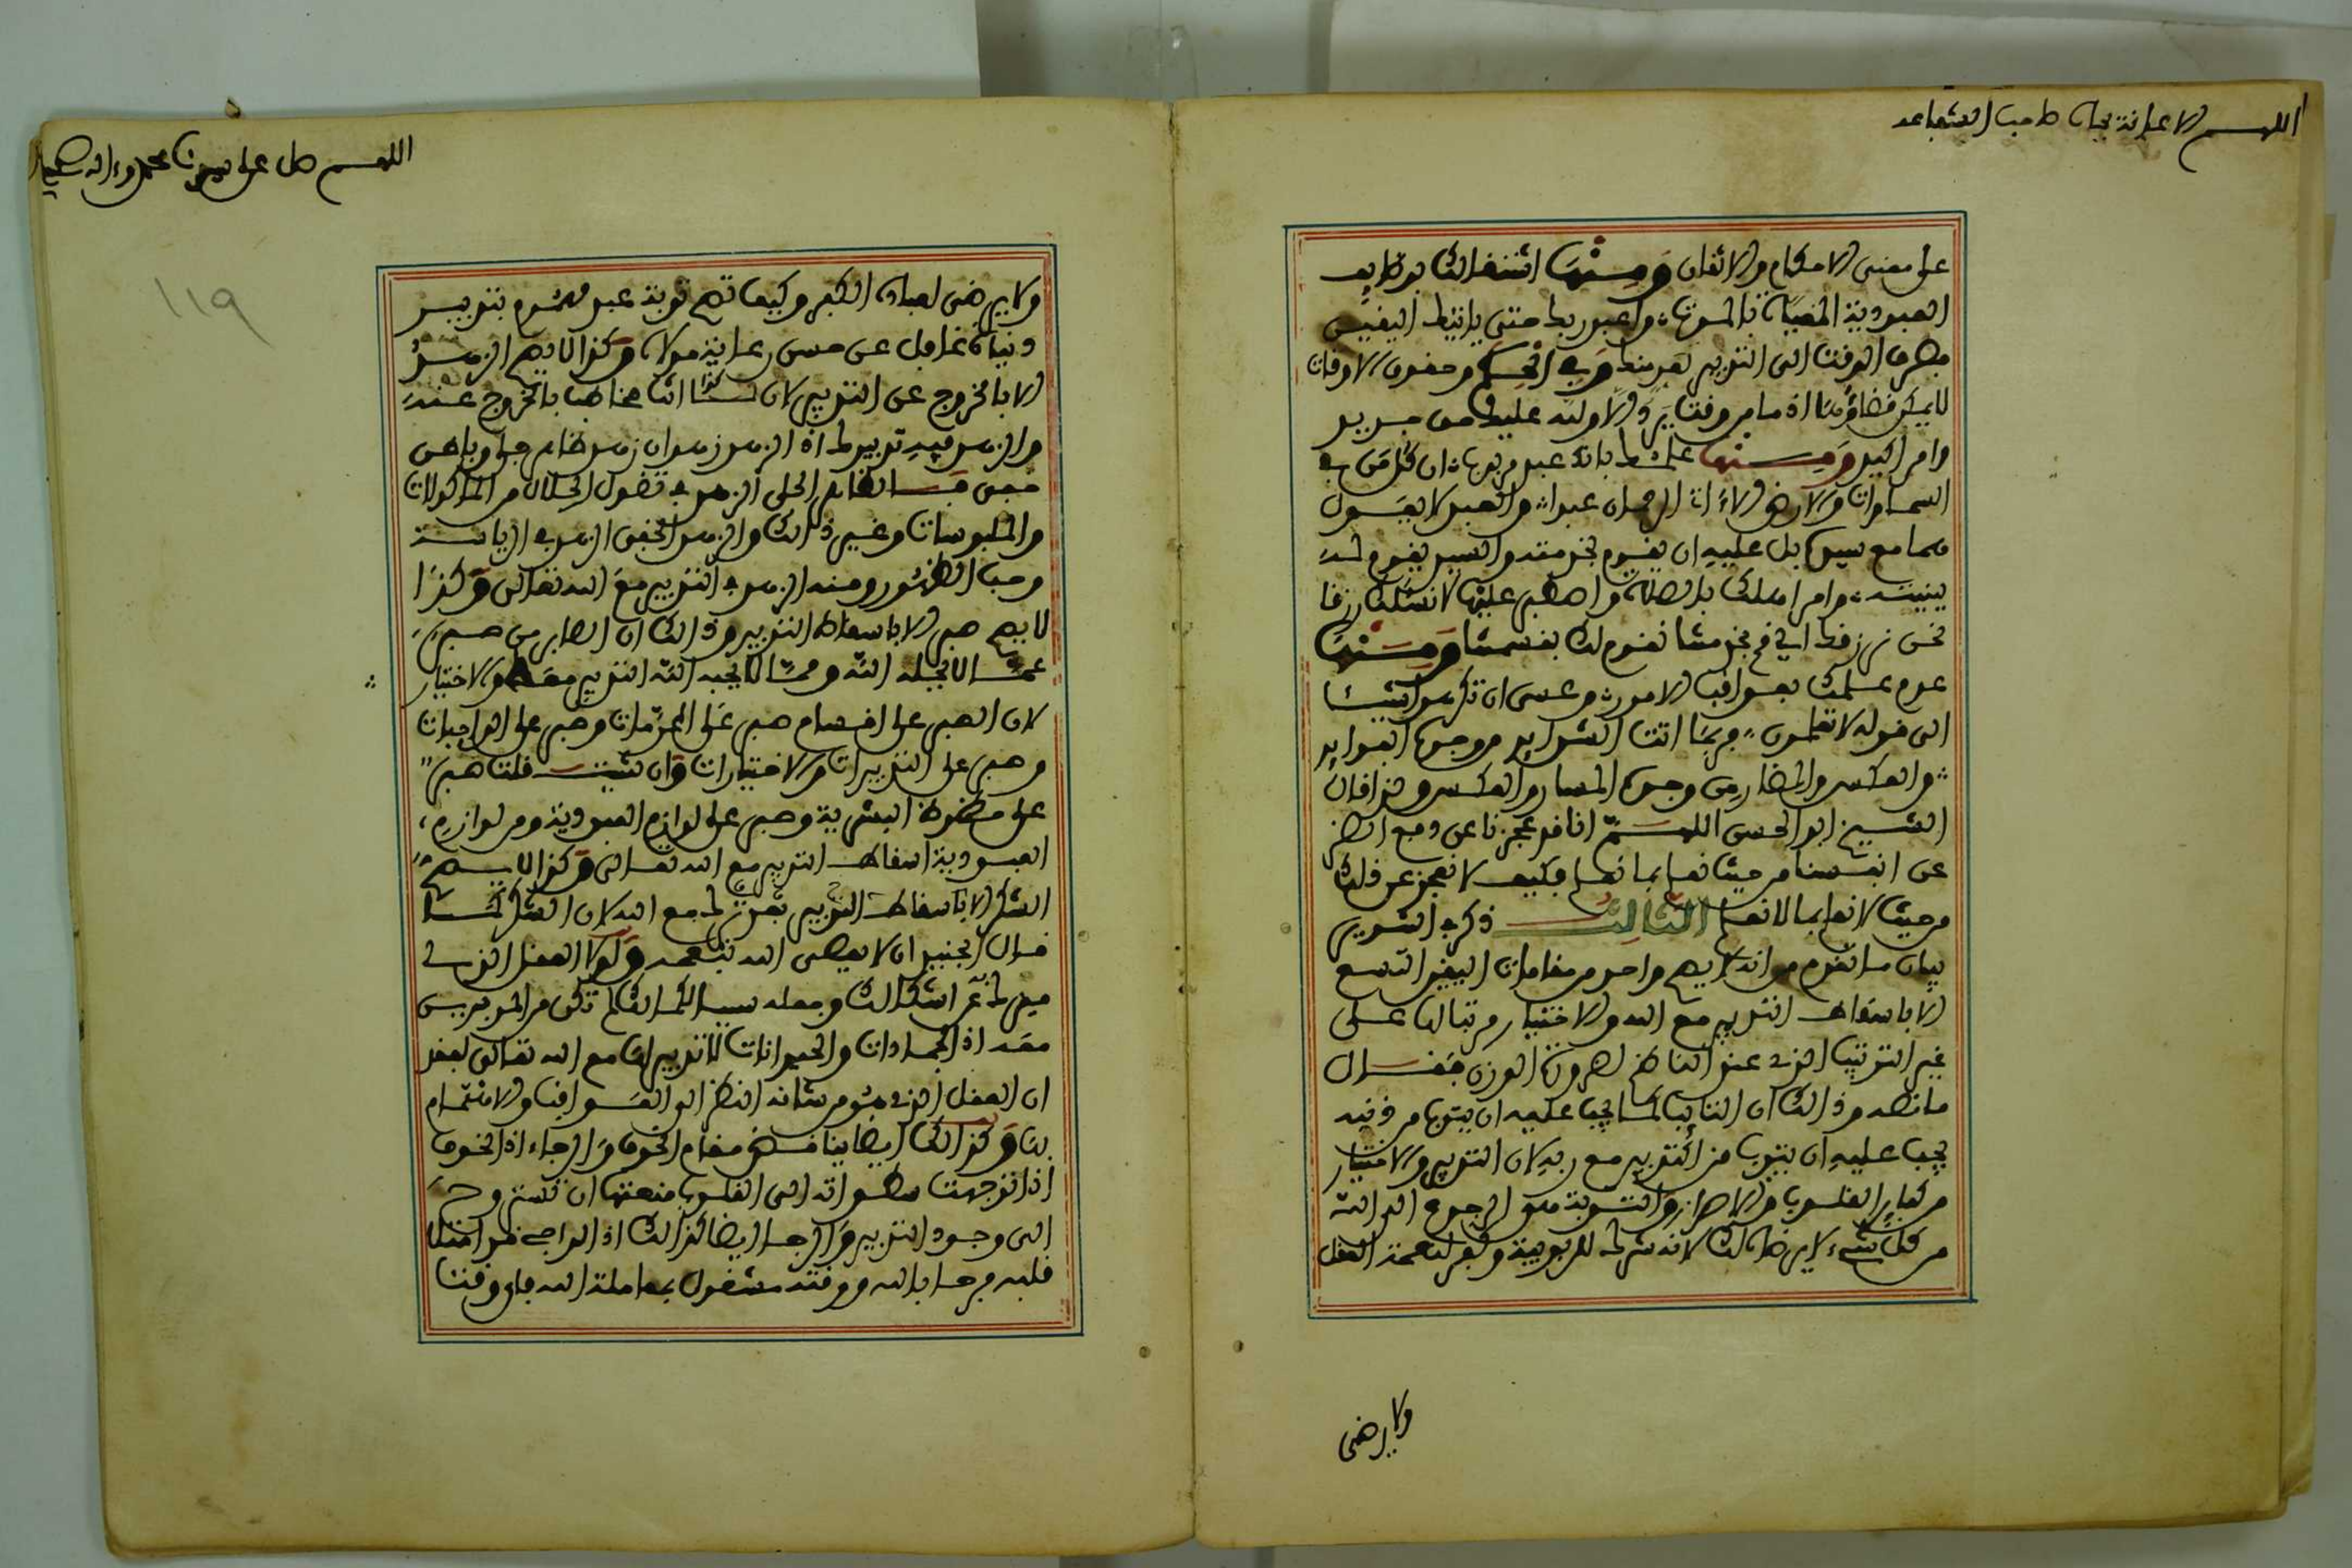 اللهم الاعانة بجاه صاحب الشفاعة
على معنى الاحكام والاتقان ومنها اشتغالك بوظايف
العبودية المغياة بالموت، واعبد ربك حتى ياتيك اليقين
بصرف الوقت الى التدبير تعد منك وفي الحكم وحقوق الاوقات
لا يمكن قضاؤها اذ ما من وقت يرد الا ولله عليك حق جديد
وامر اكيد ومنها علمك بانك عبد مربوب، ان كل من في
السماوات والارض الا ءاتي الرحمان عبدا، والعبد لا يعول
هما مع سيده بل عليه ان يقوم بخدمته والسيد يقوم له
بمنته، وامر اهلك بالصلاة واصطبر عليها لا نسئلك رزقا
نحن نرزقك اي قم بخدمتنا نقوم لك بقسمتنا ومنها
عدم علمك بعواقب الامور، وعسى ان تكرهوا شيئا
الى قوله لا تعلمون، وربما اتت الشدايد من وجوه الفوايد
والعكس والمضار من وجوه المسار والعكس ولذا قال
الشيخ ابو الحسن اللهم انا قد عجزنا عن دفع الضر
عن انفسنا من حيث نعلم بما نعلم فكيف لا نعجز عن ذلك
من حيث لا نعلم بما لا نعلم الثالث ذكر في التنوير
بيان ما تقدم من انه لا يصح واحد من مقامات اليقين التسع
الا باسقاط التدبير مع الله والاختيار مرتبا لها على
غير الترتيب الذي عند الناظم لضرورة الوزن فقال
ما نصه وذلك ان التايب كما يجب عليه ان يتوب من ذنبه
يجب عليه ان يتوب من التدبير مع ربه لان التدبير والاختيار
من كباير القلوب والاسرار والتوبة هو الرجوع الى الله
من كل شيء لا يرضاه لك لانه شرك للربوبية وكفر لنعمة العقل
ولا يرضى
اللهم صل على سيدنا محمد وءاله
١١٩
ولا يرضى لعباده الكفر وكيف تصح توبة عبد مهموم بتدبير
دنياه غافل عن حسن رعاية مولاه وكذا لا يصح الزهد
الا بالخروج عن التدبير لان كما انك مخاطب بالخروج عنه
والزهد فيه تدبيرك اذ الزهد زهدان زهد ظاهر جلي وباطن
خفي فالظاهر الجلي الزهد في فضول الحلال من الماكولات
والملبوسات وغير ذلك والزهد الخفي الزهد في الرياسة
وحب الظهور ومنه الزهد في التدبير مع الله تعالى وكذا
لا يصح صبر الا باسقاط التدبير وذلك ان الصابر من صبر
عما لا يحبه الله ومما لا يحبه الله التدبير معه والاختيار
لان الصبر على اقسام صبر على المحرمات وصبر على الواجبات
وصبر على التدبيرات والاختيارات وان شئت قلت صبر
على حظوظ البشرية وصبر على لوازم العبودية ومن لوازم
العبودية اسقاط التدبير مع الله تعالى وكذا لا يصح
الشكر الا باسقاط التدبير مع الله لان الشكر كما
قال الجنيد ان لا يعصى الله بنعمه ولولا العقل الذي
ميزك عن اشكالك وجعله سببا لكمالك لم تكن من المدبرين
معه اذ الجمادات والحيوانات لا تدبير لها مع الله تعالى لفقد
ان العقل الذي هو من شانه النظر الى العواقب والاهتمام
بها وكذلك ايضا يناقض مقام الخوف والرجاء اذ الخوف
اذا توجهت سطواته الى القلوب منعتها ان تستروح
الى وجود التدبير والرجا ايضا كذلك اذ الراجي قد امتلا
قلبه فرحا بالله ووقته مشغول بمعاملة الله فاي وقت